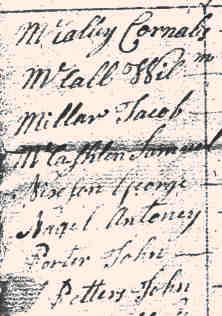 McCalley Cornals
McCall Wilm
Millar Jacob
McCashlon Samuel
Nixson George
Nagel Antoney
Porter John
Petters John